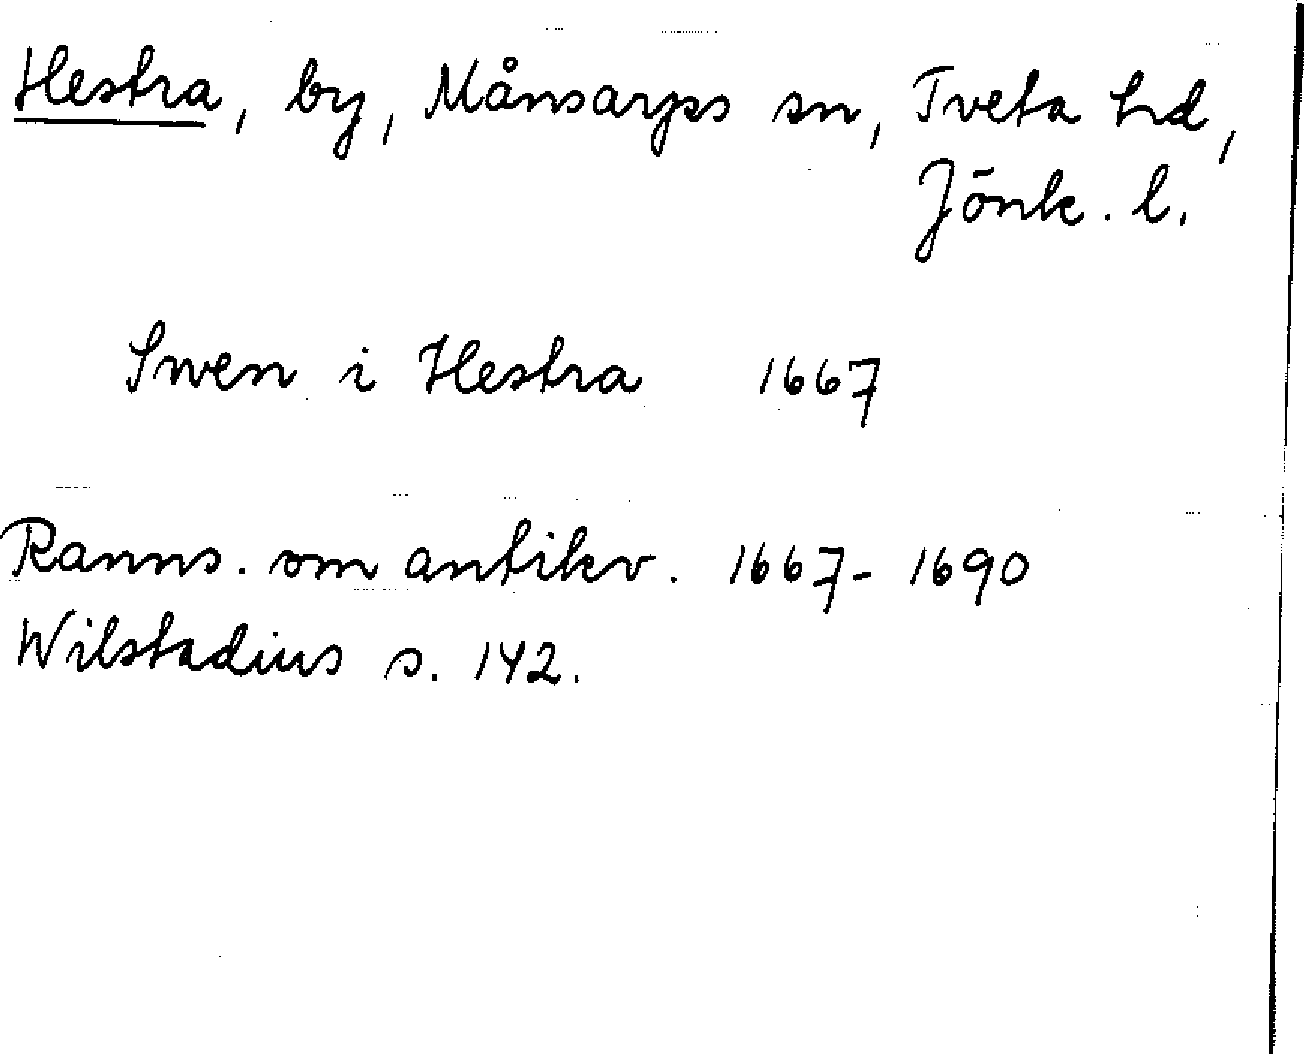 Hestra, by, Månsarps sn, Tveta hd,
Jönk. l.
Swen i Hestra 1667
Ranns. om antikv. 1667-1690
Wilstadius s. 142.